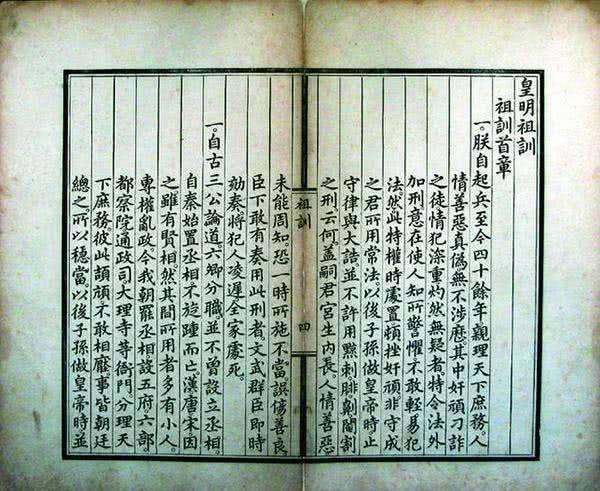 皇明祖訓
祖訓首章
一。朕自起兵至今四十餘年。親理天下庶務。人
情善惡真偽。無不涉歷。其中奸頑刁詐
之徒。情犯深重。灼然無疑者。特令法外
加刑。意在使人知所警懼。不敢輕易犯
法。然此特權時處置。頓挫奸頑。非守成
之君所用常法。以後子孫做皇帝時。止
守律與大誥。並不許用黥刺腓劓閹割
之刑。云何。蓋嗣君宮生內長。人情善惡
祖訓 四
未能周知。恐一時所施不當。誤傷善良。
臣下敢有奏用此刑者。文武群臣即時
劾奏。將犯人凌遲。全家處死。
一。自古三公論道。六卿分職。並不曾設立丞相。
自秦始置丞相。不旋踵而亡。漢唐宋因
之。雖有賢相。然其間所用者多有小人。
專權亂政。今我朝罷丞相。設五府。六部。
都察院。通政司。大理寺等衙門。分理天
下庶務。彼此頡頏。不敢相壓。事皆朝廷
總之。所以穩當。以後子孫做皇帝時。並